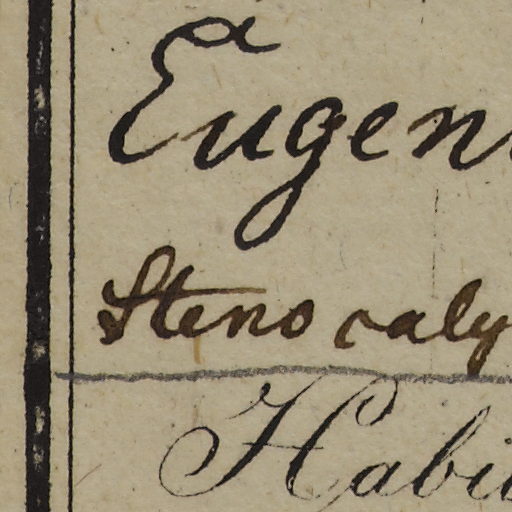 Eugen
Steno caly
Habi